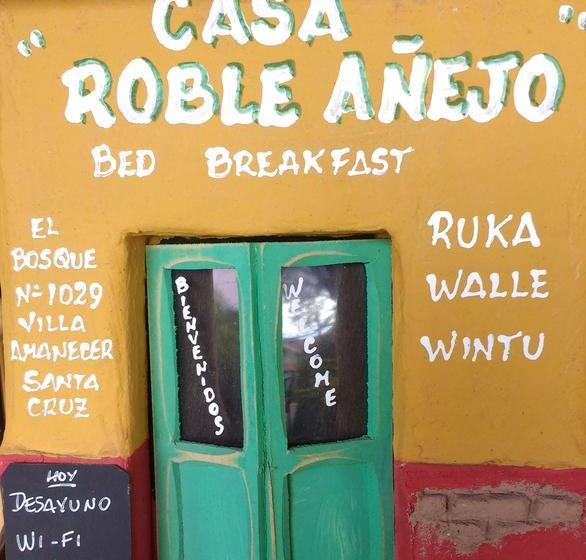 CASA
"ROBLE AÑEJO"
BED BREAKFAST
EL
BOSQUE
Nº 1029
VILLA
AMANECER
SANTA
CRUZ
BIENVENIDOS
WELCOME
RUKA
WALLE
WINTU
HOY
DESAYUNO
WI-FI